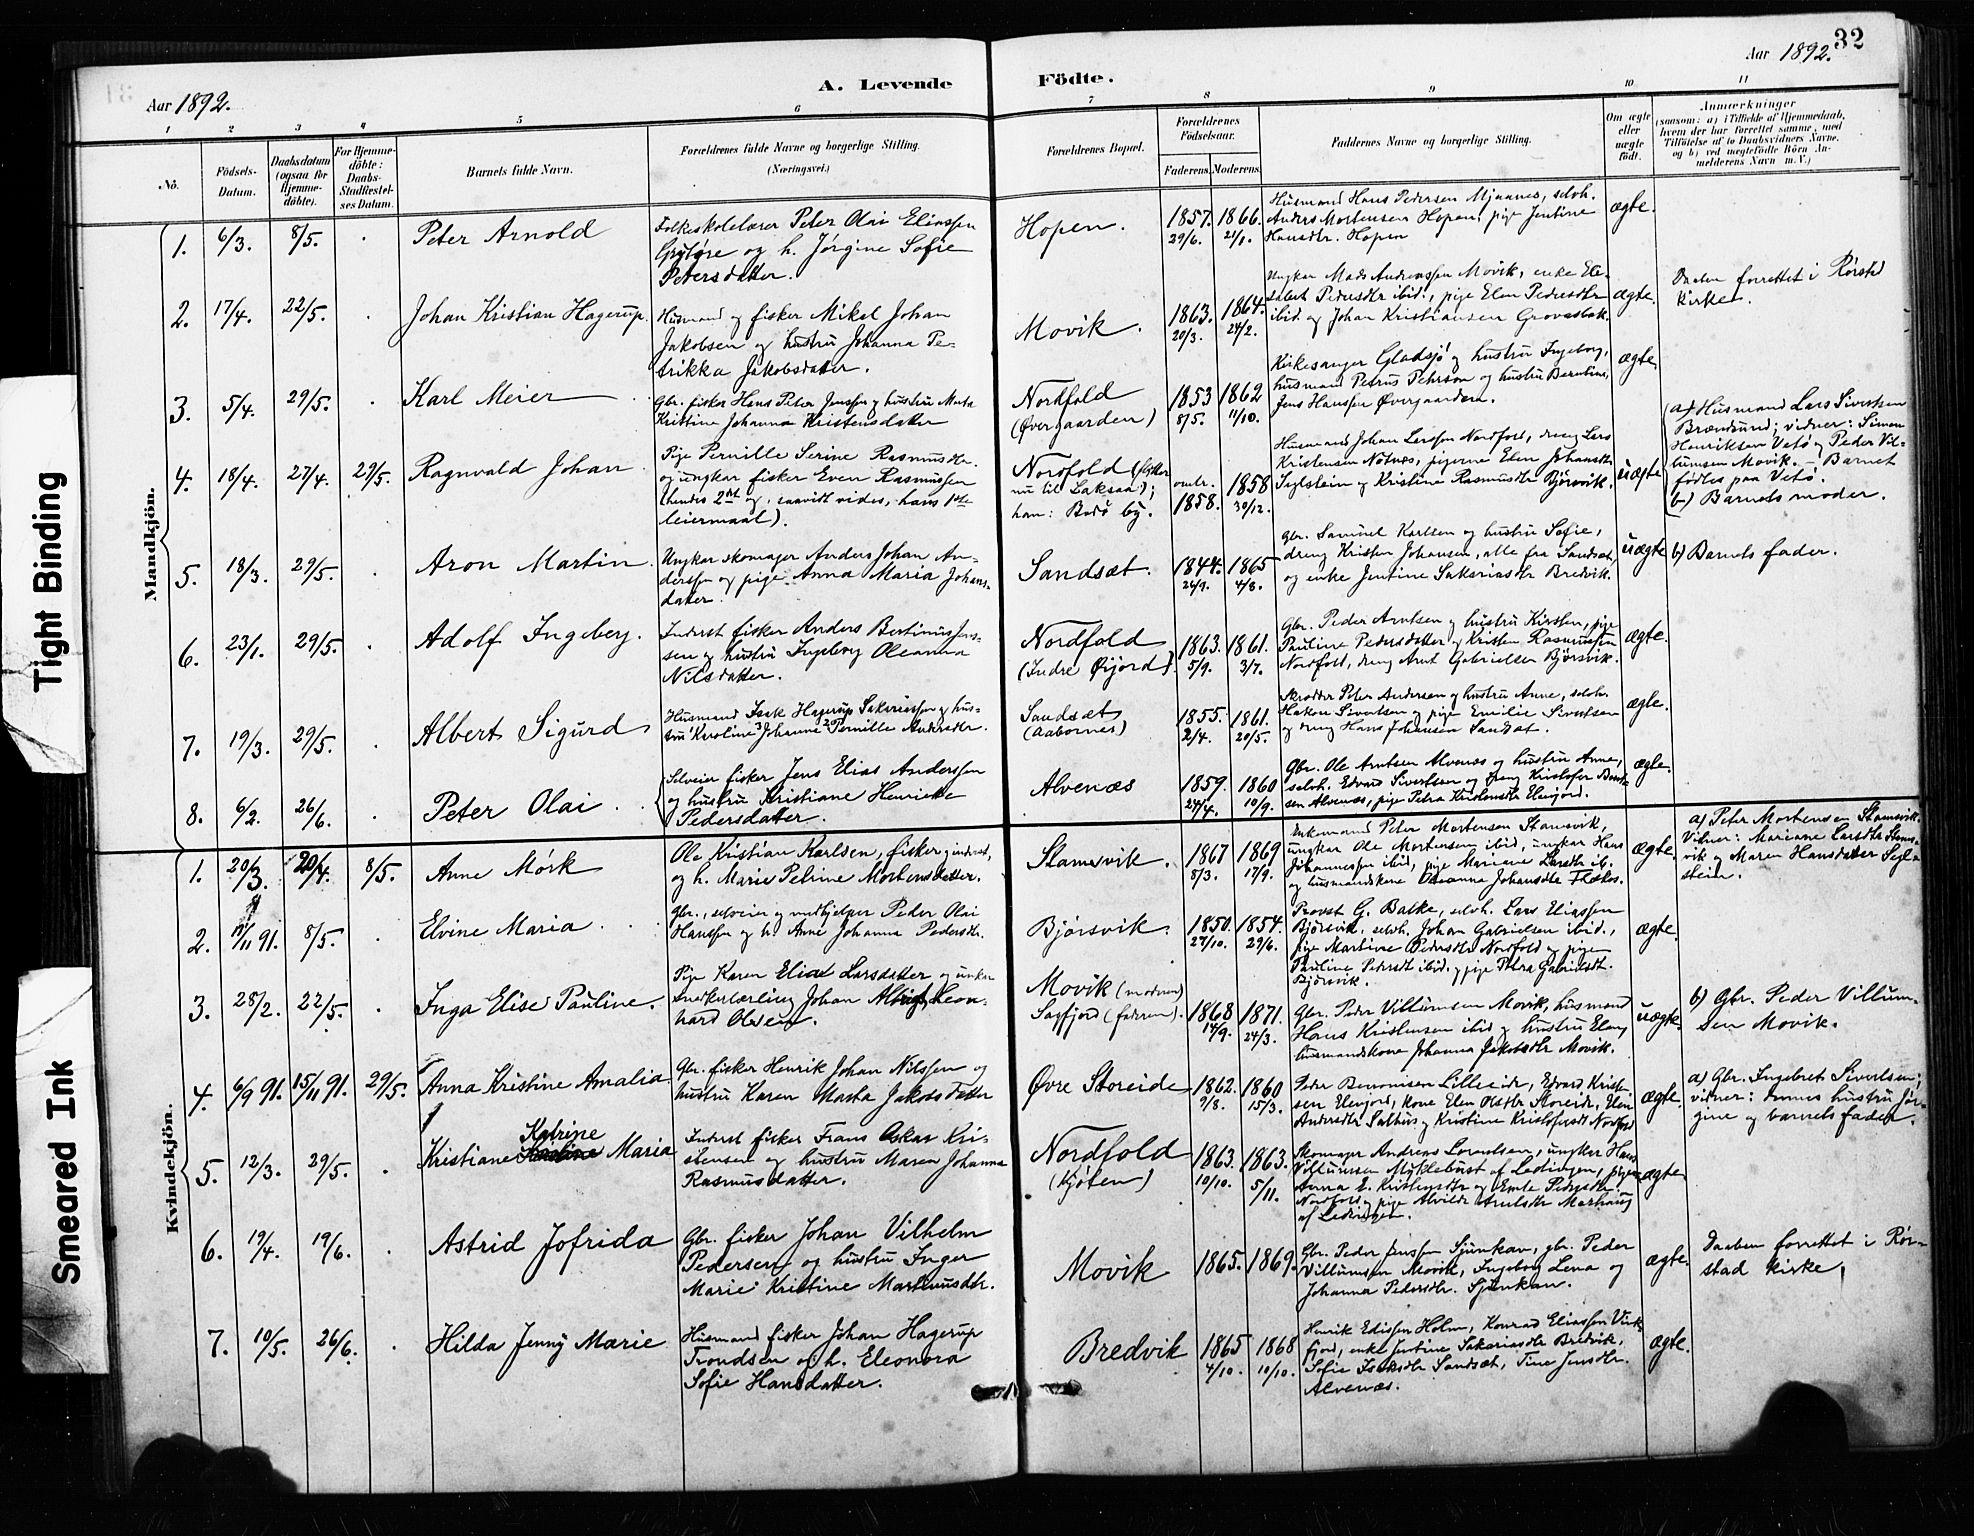 32
Aar 1892.
A. Levende
Födte.
Aar 1892.
1 2 3 4 5 6 7 8 9 10 11
No.
Födsels-
Datum.
Daabsdatum
(ogsaa for
Hjemme-
döbte).
For Hjemme-
döbte:
Daabs-
Stadfæstel-
ses Datum.
Barnets fulde Navn.
Forældrenes fulde Navne og borgerlige Stilling.
(Næringsvei.)
Forældrenes Bopæl.
Forældrenes
Födselsaar.
Faderens. Moderens.
Faddernes Navne og borgerlige Stilling.
Om ægte
eller
uægte
födt.
Anmærkninger
(saasom: a) i Tilfælde af Hjemmedaab,
hvem der har forrettet samme, med
Tilföielse af to Daabsvidners Navne.
og b) ved uegtefödte Börn An-
melderens Navn m. V.)
Tight Binding
Smeared Ink
Mandkjön.
1. 6/3. 8/5. Peter Arnold
Folkeskolelærer Peter Olai Eliassen
Grytøre og h. Jørgine Sofie
Petersdatter.
Hopen. 1857. 29/6. 1866. 21/1.
Husmand Hans Pedersen Mjaanes, selvh.
Anders Mortensen Hopen, pige Jentine
Hansdtr. Hopen
ægte.
2. 17/4. 22/5. Johan Kristian Hagerup.
Husmand og fisker Mikal Johan
Jakobsen og hustru Johanna Pe-
trikka Jakobsdatter.
Movik. 1863. 20/3. 1864. 24/2.
Ungkar Mads Andreassen Movik, enke Ele-
sabet Pedersdtr ibid., pige Elen Pedersdtr
ibid. og Johan Kristiansen Grovasbak.
ægte.
Daaben forrettet i Rørstad
kirke.
3. 5/4. 29/5. Karl Meier
Gbr. fisker Hans Peter Jenssen og hustru Marta
Kristine Johanna Kristensdatter
Nordfold
(Øvergaarden)
1853 8/5. 1862 11/10.
Kirkesanger Gladsjø og hustru Ingeborg,
husmand Petrus Pehrson og hustru Berntine,
Jens Hanssen Øvergaarden.
ægte
4. 18/4. 27/4. 29/5. Ragnvald Johan
Pige Pernille Serine Rasmusdtr.
og ungkar fisker Even Rasmussen
(hendes 2det og, saavidt vides, hans 1ste
leiermaal).
Nordfold (flytter
nu til Laksaa);
han: Bodø by.
omtr. 1858. 1858 30/12.
Husmand Johan Larssen Nordfold, dreng Lars
Kristensen Notnes, pigerne Elen Johansdtr
Seglstein og Kristine Rasmusdtr Bjørsvik.
uægte
(a) Husmand Lars Sivertsen
Brændsund; vidner: Simon
Henriksen Vetø og Peder Vil-
lumsen Movik. – Barnet
fødtes paa Vetø.
b) Barnets moder.
5. 18/3. 29/5. Aron Martin
Ungkar skomager Anders Johan An-
derssen og pige Anna Maria Johans-
datter.
Sandsæt. 1844. 26/9. 1865 4/8.
Gbr. Samuel Karlsen og hustru Sofie,
dreng Kristen Johansen, alle fra Sandsæt,
og enke Jentine Sakariasdtr Bredvik.
uægte
b) Barnets fader.
6. 23/1. 29/5. Adolf Ingeberg.
Inderst fisker Anders Bertinus Jens-
sen og hustru Ingeborg Oleanna
Nilsdatter.
Nordfold
(Indre Øijord)
1863. 5/9. 1861. 3/7.
Gbr. Peder Arntsen og hustru Kirsten, pige
Pauline Pedersdatter og Kristen Rasmussen
Nordfold, dreng Arnt Gabrielsen Bjørsvik.
ægte.
7. 19/3. 29/5. Albert Sigurd
Husmand Isak Hagerup Sakariassen og hus-
tru Karoline Johanne Pernille Andersdtr.
Sandsæt
(Aabornes)
1855. 2/4. 1861. 20/5.
Skrædder Peter Andersen og hustru Anne, selvh.
Hakon Sivertsen og pige Emilie Sivertsen
og dreng Hans Johansen Sandsæt.
ægte.
8. 6/2. 26/6. Peter Olai
Selveier fisker Jens Elias Anderssen
og hustru Kristiane Henrikke
Pedersdatter.
Alvenæs 1859. 24/4. 1860 10/9.
Gbr. Ole Arntsen Alvenæs og hustru Anne,
selvh. Edvard Sivertsen og dreng Kristofer Bendt-
sen Alvenæs, pige Petra Kristensdtr Elvegord.
ægte.
Kvindekjön.
1. 20/3. 20/4. 8/5. Anne Mørk
Ole Kristian Karlsen, fisker, inderst,
og h. Marie Petrine Mortensdatter.
Stamsvik. 1867 8/3. 1869 17/9.
Enkemand Peter Mortensen Stamsvik,
ungkar Ole Mortensen ibid, ungkar Hans
Johannessen ibid, pige Mariane Larsdtr ib.
og husmandskone Oleanna Johansdtr
ægte.
a) Peter Mortensen Stamsvik.
Vidner: Mariane Larsdtr Stams-
vik og Maren Hansdatter Segl-
stein.
2. 17/11 91. 8/5. Elvine Maria.
Gbr., selveier og medhjelper Peder Olai
Hanssen og h. Anne Johanna Pedersdtr.
Bjørsvik. 1850. 27/10. 1854. 29/6.
Provst G. Balke, selvh. Lars Eliassen
Bjørsvik, selvh. Johan Gabrielsen ibid.,
pige Martine Pedersdtr Nordfold og pige
Pauline Pedersdt ibid. og pige Petra Gabrielsdt.
Bjørsvik.
ægte.
3. 28/2. 22/5. Inga Elise Pauline.
Pige Karen Eliat Larsdatter og unkar
snedkerlærling Johan Albrigt Leon-
hard Olsen.
Movik (moderen)
Sagfjord (faderen).
1868 14/9. 1871. 24/3.
Gbr. Peder Villumsen Movik, husmand
Hans Kristensen ibid og hustru Elen,
husmandskone Johanna Jakobsdtr Movik.
uægte.
b) Gbr. Peder Villum-
sen Movik.
4. 6/9 91. 15/11 91. 29/5. Anna Kristine Amalia
Gbr. fisker Henrik Johan Nilssen og
hustru Karen Marta Jakobs datter
Øvre Storeide 1862. 9/8. 1860 15/3.
Peder Benonisen Lilleeide, Edvard Kristen-
sen Elvegord, kone Elen Olsdtr Storeide, Elen
Andersdtr Salhus og Kristine Kristofersdt Nordfold
ægte.
a) Gbr. Ingebret Sivertsen;
vidner: dennes hustru Jør-
gine og barnets fader.
5. 12/3. 29/5. Kristiane Katrine Maria
Inderst fisker Frans Oskar Kri-
stensen og hustru Maren Johanna
Rasmusdatter.
Nordfold
(Kjøten)
1863. 10/10. 1863. 5/11.
Skomager Andreas Lorentsen, ungkar Hans
Villumsen Myklebust af Lødingen, pigerne
Anna E. Kristensdtr og Emte Pedersdtr.
Nordfold og pige Alvilde Arntsdtr Markaug
af Lødingen.
ægte
6. 19/4. 19/6. Astrid Jofrida
Gbr. fisker Johan Vilhelm
Pedersen og hustru Inger
Marie Kristine Martinusdtr.
Movik 1865. 1869.
Gbr. Peder Jenssen Sjunkan, gbr. Peder
Villumsen Movik, Ingeborg Lena og
Johanna Pedersdtr. Sjunkan.
ægte.
Daaben forrettet i Rør-
stad kirke.
7. 10/5. 26/6. Hilda Jenny Marie
Husmand fisker Johan Hagerup
Trondsen og h. Eleonora
Sofie Hansdatter.
Bredvik 1865 4/10. 1868 10/10.
Henrik Edissen Holm, Konrad Eliassen Vink-
fjord, enke Jentine Sakariasdtr Bredvik,
Sofie Isaksdtr Sandsæt, Tine Jensdtr.
Alvenæs.
ægte.